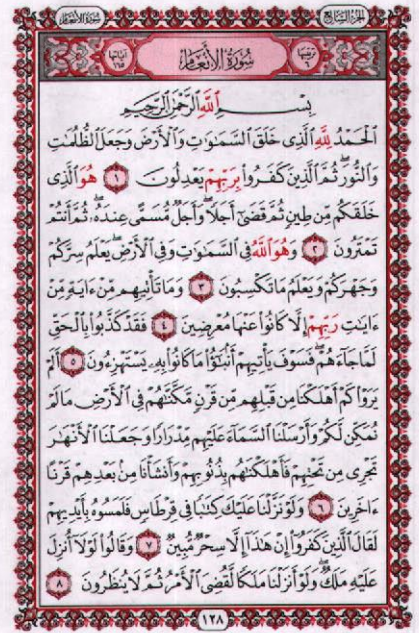 سُورَةُ الأَنعَام الجُزءُ السَّابِعُ
ترتيبها ٦ سُورَةُ الأَنعَام آياتها ١٦٥
بِسْمِ ٱللَّهِ ٱلرَّحْمَٰنِ ٱلرَّحِيمِ
ٱلْحَمْدُ لِلَّهِ ٱلَّذِى خَلَقَ ٱلسَّمَٰوَٰتِ وَٱلْأَرْضَ وَجَعَلَ ٱلظُّلُمَٰتِ
وَٱلنُّورَ ۖ ثُمَّ ٱلَّذِينَ كَفَرُوا۟ بِرَبِّهِمْ يَعْدِلُونَ ١ هُوَ ٱلَّذِى
خَلَقَكُم مِّن طِينٍ ثُمَّ قَضَىٰٓ أَجَلًا ۖ وَأَجَلٌ مُّسَمًّى عِندَهُۥ ۖ ثُمَّ أَنتُمْ
تَمْتَرُونَ ٢ وَهُوَ ٱللَّهُ فِى ٱلسَّمَٰوَٰتِ وَفِى ٱلْأَرْضِ ۖ يَعْلَمُ سِرَّكُمْ
وَجَهْرَكُمْ وَيَعْلَمُ مَا تَكْسِبُونَ ٣ وَمَا تَأْتِيهِم مِّنْ ءَايَةٍ مِّنْ
ءَايَٰتِ رَبِّهِمْ إِلَّا كَانُوا۟ عَنْهَا مُعْرِضِينَ ٤ فَقَدْ كَذَّبُوا۟ بِٱلْحَقِّ
لَمَّا جَآءَهُمْ ۖ فَسَوْفَ يَأْتِيهِمْ أَنۢبَٰٓؤُا۟ مَا كَانُوا۟ بِهِۦ يَسْتَهْزِءُونَ ٥ أَلَمْ
يَرَوْا۟ كَمْ أَهْلَكْنَا مِن قَبْلِهِم مِّن قَرْنٍ مَّكَّنَّٰهُمْ فِى ٱلْأَرْضِ مَا لَمْ
نُمَكِّن لَّكُمْ وَأَرْسَلْنَا ٱلسَّمَآءَ عَلَيْهِم مِّدْرَارًا وَجَعَلْنَا ٱلْأَنْهَٰرَ
تَجْرِى مِن تَحْتِهِمْ فَأَهْلَكْنَٰهُم بِذُنُوبِهِمْ وَأَنشَأْنَا مِنۢ بَعْدِهِمْ قَرْنًا
ءَاخَرِينَ ٦ وَلَوْ نَزَّلْنَا عَلَيْكَ كِتَٰبًا فِى قِرْطَاسٍ فَلَمَسُوهُ بِأَيْدِيهِمْ
لَقَالَ ٱلَّذِينَ كَفَرُوٓا۟ إِنْ هَٰذَآ إِلَّا سِحْرٌ مُّبِينٌ ٧ وَقَالُوا۟ لَوْلَآ أُنزِلَ
عَلَيْهِ مَلَكٌ ۖ وَلَوْ أَنزَلْنَا مَلَكًا لَّقُضِىَ ٱلْأَمْرُ ثُمَّ لَا يُنظَرُونَ ٨
١٢٨